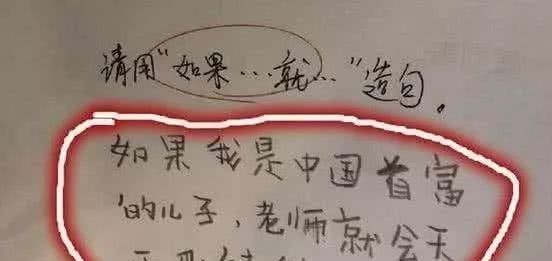 请用“如果…就…”造句。
如果我是中国首富
的儿子，老师就会天